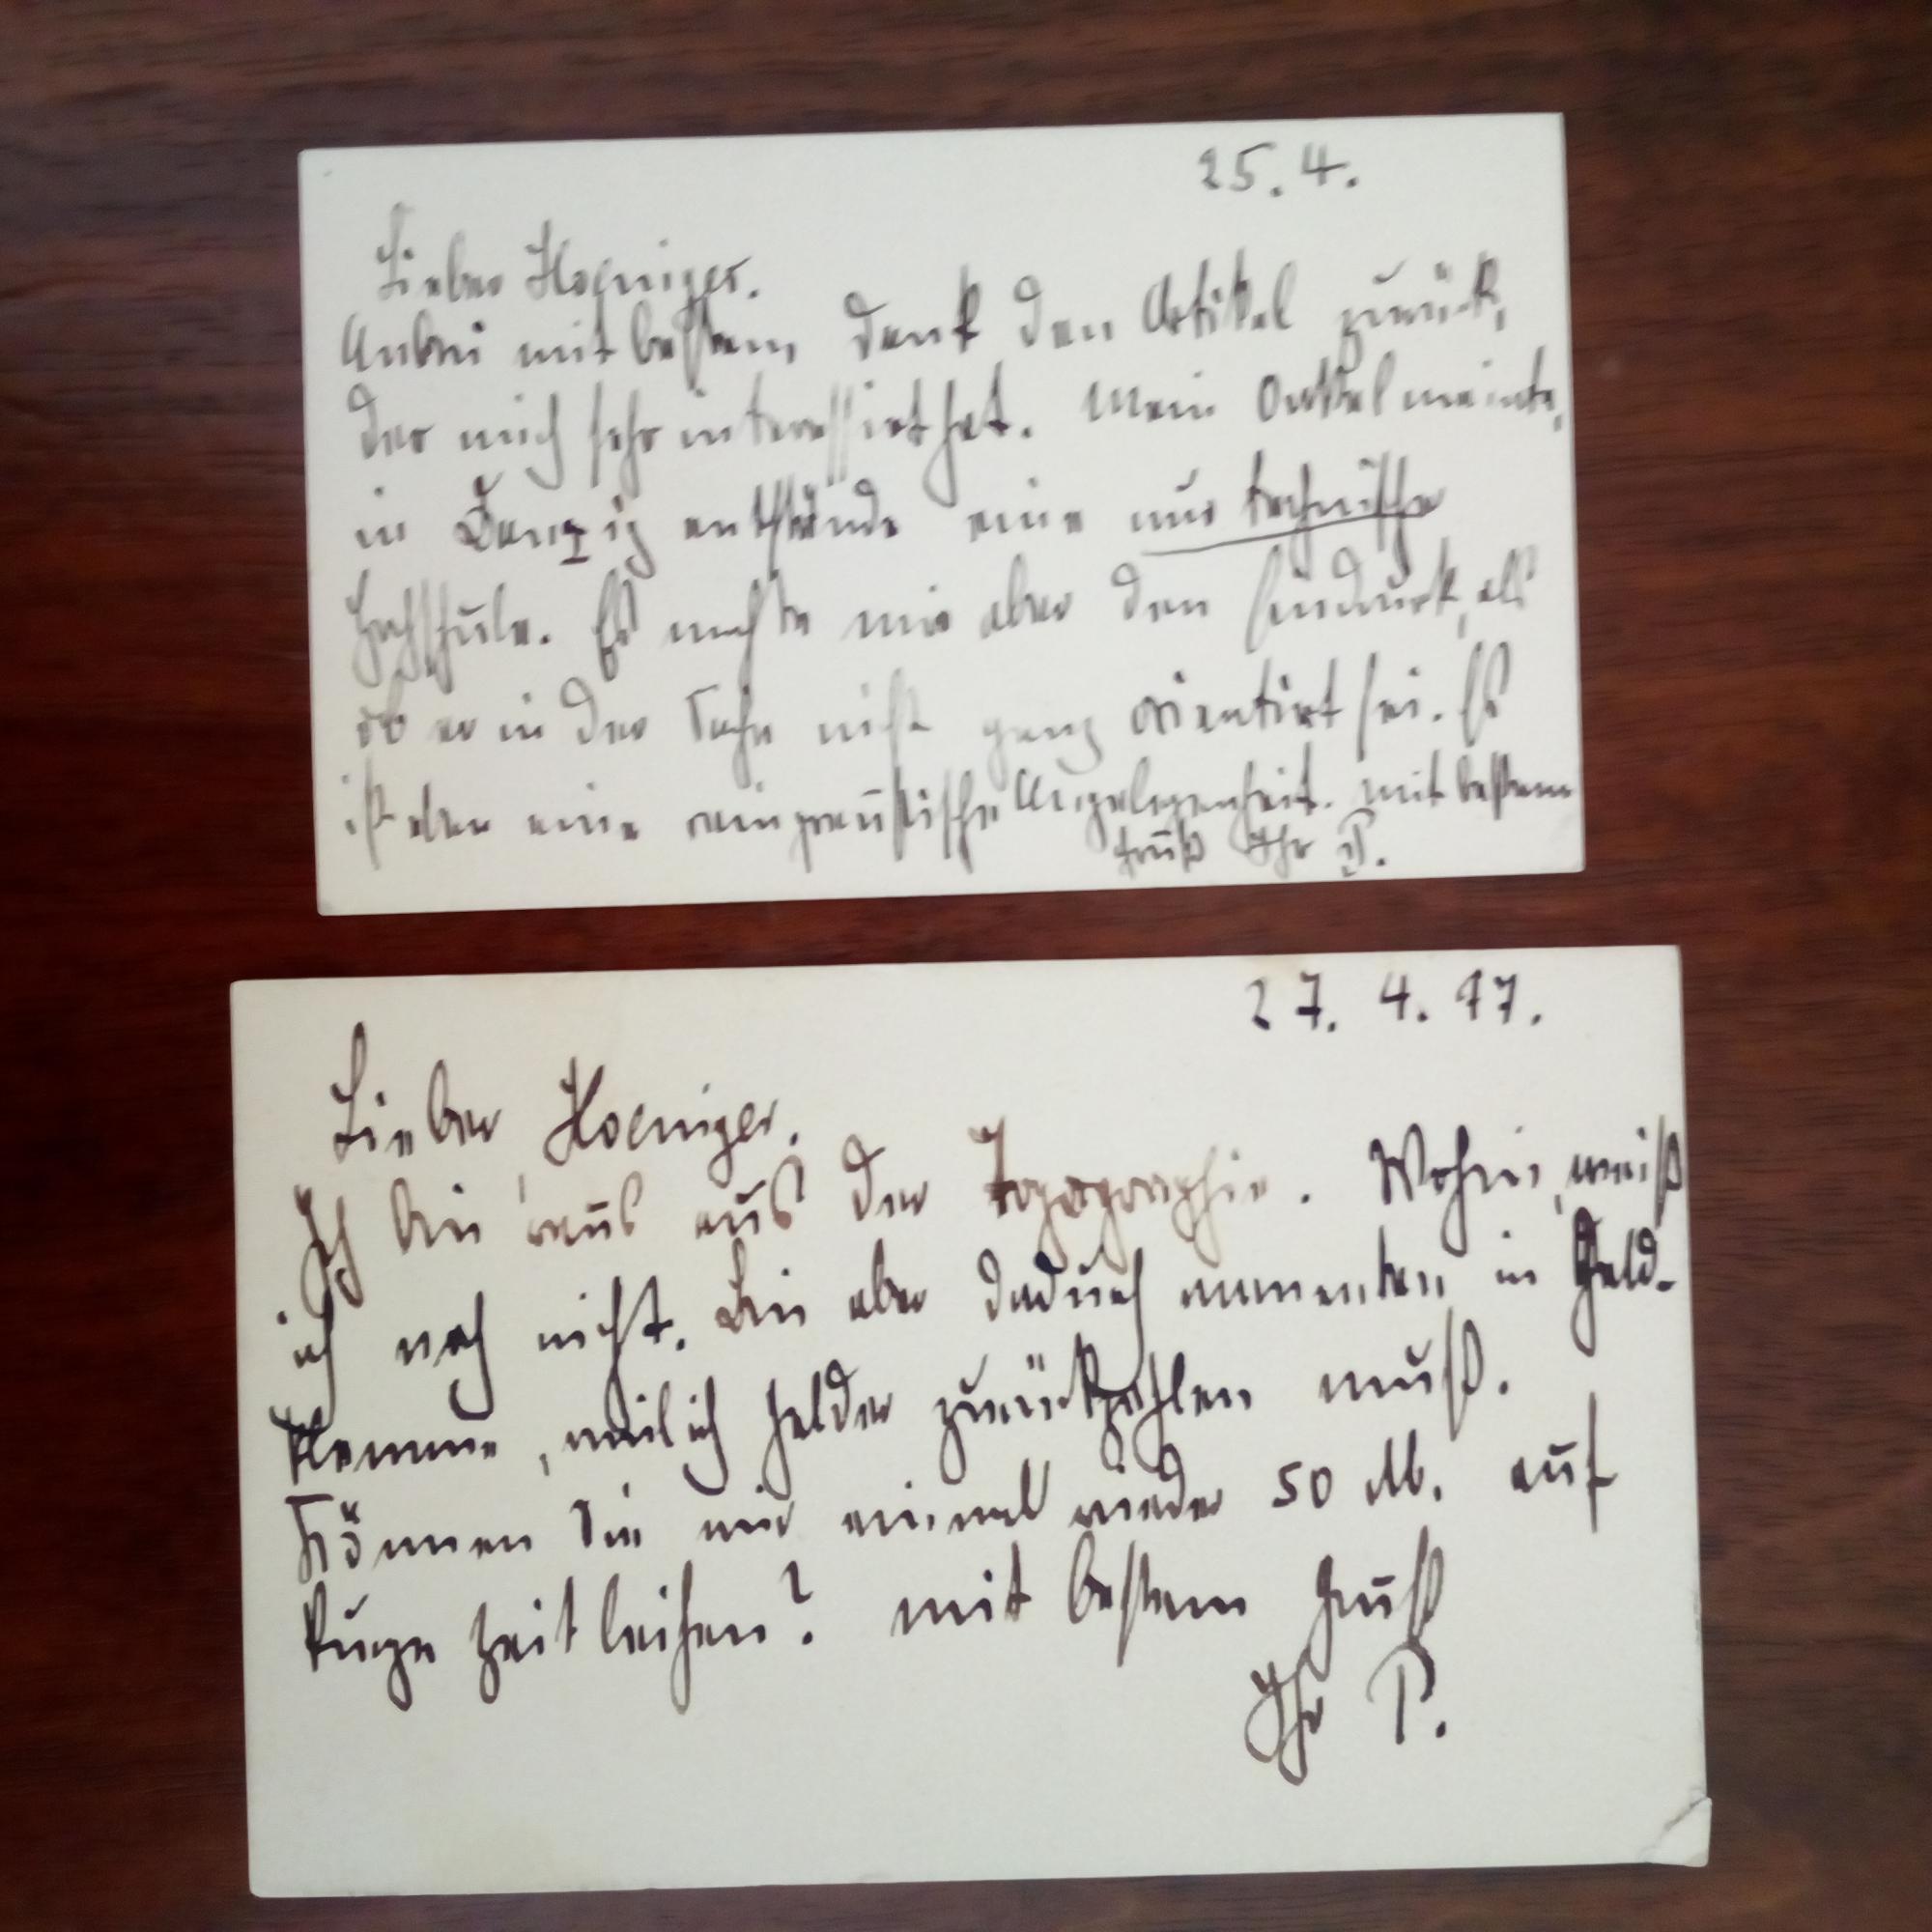 25. 4.
Lieber Hoeniger.
Anbei mit bestem Dank den Artikel zurück,
der mich sehr interessirt hat. Mein Onkel meinte,
in Danzig entstände eine nur technische
Hochschule. Es machte mir aber den Eindruck, als
ob er in der Sache nicht ganz orientirt sei. Es
ist eben eine rein preußische Angelegenheit. Mit bestem
Gruß Ihr P.
27. 4. 17.
Lieber Hoeniger.
Ich bin 'raus aus der Topographie. Wohin, weiß
ich noch nicht. Bin aber dadurch momentan in Geld-
klemme, weil ich Gelder zurückzahlen muß.
Können Sie mir einmal wieder 50 M. auf
kurze Zeit leihen? Mit bestem Gruß
Ihr P.